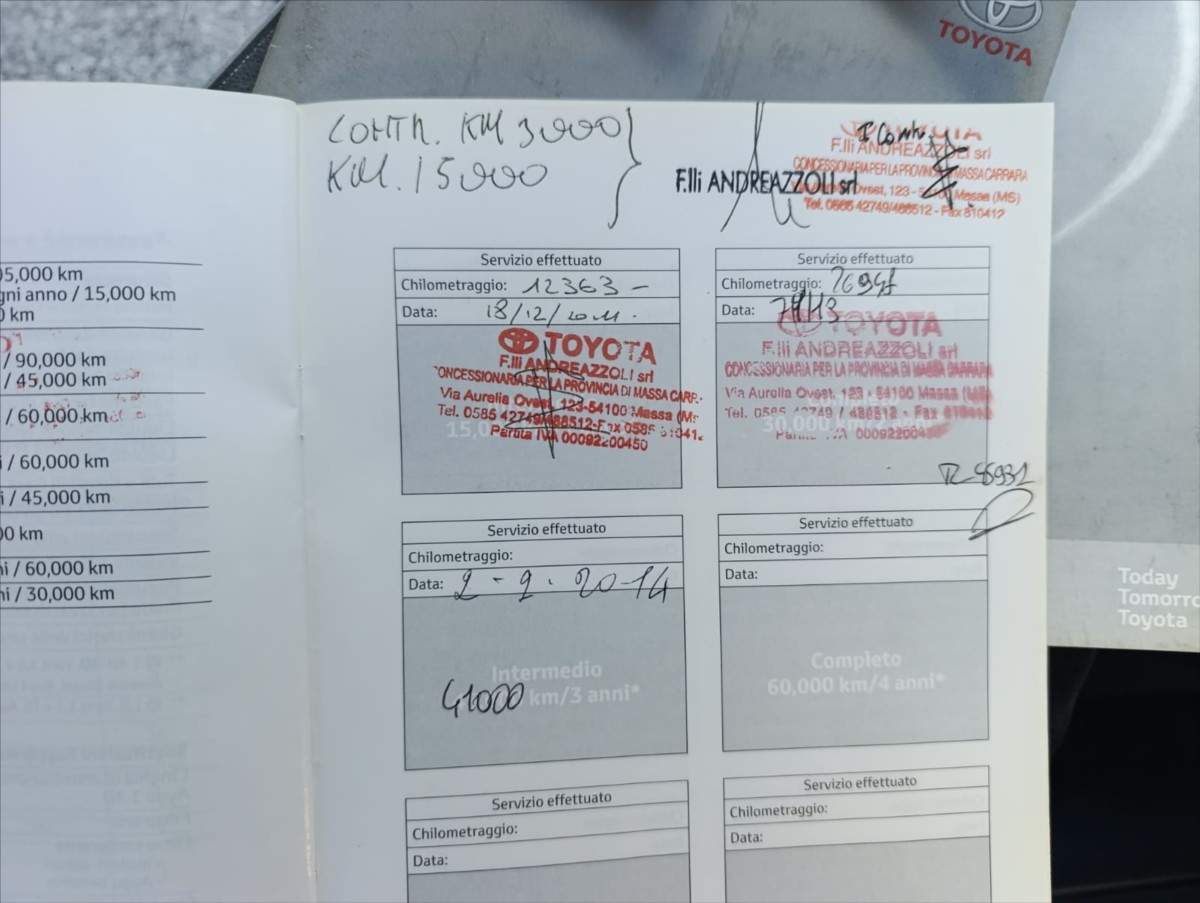 TOYOTA
CONTR. KM 3000
KM. 15000
F.lli ANDREAZZOLI srl
F.lli ANDREAZZOLI srl
CONCESSIONARIA PER LA PROVINCIA DI MASSA CARRARA
Ovest, 123 - Massa (MS)
Tel. 0585 42749/488512 - Fax 810412
05,000 km
gni anno / 15,000 km
0 km
/ 90,000 km
/ 45,000 km
/ 60,000 km
i / 60,000 km
i / 45,000 km
00 km
ni / 60,000 km
ni / 30,000 km
Servizio effettuato
Chilometraggio: 12363 -
Data: 18/12/2011.
TOYOTA
F.lli ANDREAZZOLI srl
CONCESSIONARIA PER LA PROVINCIA DI MASSA CARR
Via Aurelia Ovest, 123-54100 Massa (M
Tel. 0585 42749/488512-Fax 0585 81041
Partita IVA 00092200450
15,0
Servizio effettuato
Chilometraggio:
Data:
TOYOTA
F.lli ANDREAZZOLI srl
CONCESSIONARIA PER LA PROVINCIA DI MASSA CARRARA
Via Aurelia Ovest, 123 - 54100 Massa
Tel. 0585 42749 / 488512 - Fax
30,000 km/2
IVA 00092200450
Servizio effettuato
Chilometraggio:
Data: 2-9-2014
Intermedio
41000 km/3 anni*
Servizio effettuato
Chilometraggio:
Data:
Completo
60,000 km/4 anni*
Servizio effettuato
Chilometraggio:
Data:
Servizio effettuato
Chilometraggio:
Data:
Today
Tomorro
Toyota